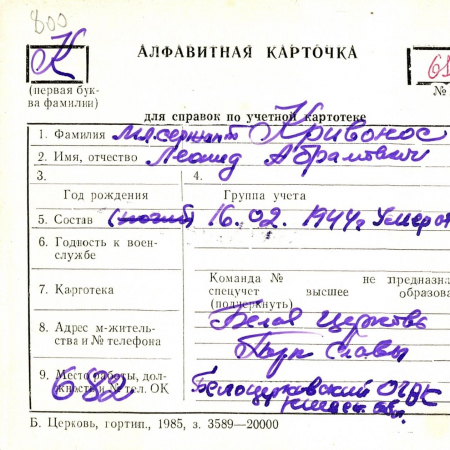 800
К
АЛФАВИТНАЯ КАРТОЧКА
68
(первая бук-
ва фамилии)
№
для справок по учетной картотеке
1. Фамилия мл.сержант Кривонос
2. Имя, отчество Леонид Абрамович
3.
4.
Год рождения
Группа учета
5. Состав (погиб) 16.02.1944г Умер от
6. Годность к воен-
службе
7. Картотека
Команда № не предназна
спецучет высшее образова
(подчеркнуть)
8. Адрес м-житель-
ства и № телефона
Белая Церковь
Парк Славы
9. Место работы, дол-
жность и № тел. ОК
682
Белоцерковский ОГВК
Б. Церковь, гортип., 1985, з. 3589—20000